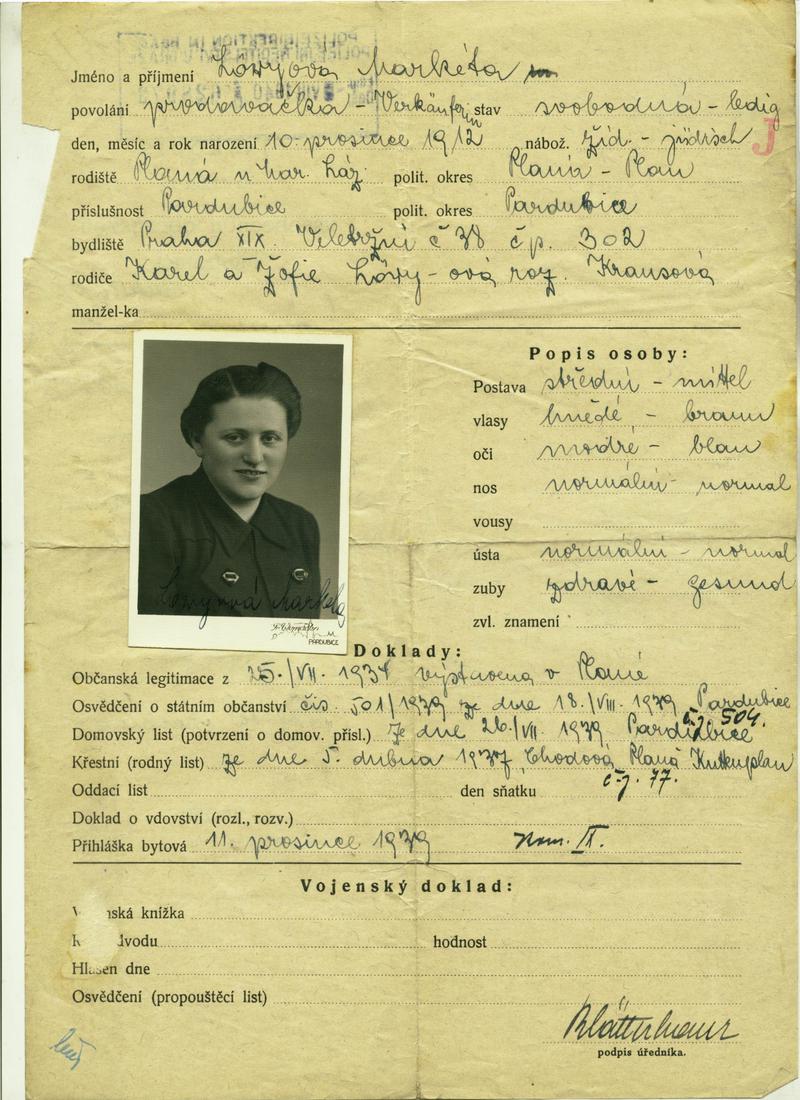 Jméno a příjmení Löwyova Markéta
povolání prodavačka - Verkäuferin stav svobodná - ledig
den, měsíc a rok narození 10. prosince 1912 nábož. žid. - jüdisch J
rodiště Planá u Mar. Láz. polit. okres Planá - Plan
příslušnost Pardubice polit. okres Pardubice
bydliště Praha XIX. Veletržní č 38 čp. 302
rodiče Karel a Žofie Löwy-ová roz. Krausová
manžel-ka
Popis osoby:
Postava střední - mittel
vlasy hnědé - braun
oči modré - blau
nos normální - normal
vousy
ústa normální - normal
zuby zdravé - gesund
zvl. znamení
Löwyová Markéta
PARDUBICE
Doklady:
Občanská legitimace z 25./VII. 1934 výstavena v Plané
Osvědčení o státním občanství čís 501/1939 ze dne 18./VIII. 1939 Pardubice
Domovský list (potvrzení o domov. přísl.) Ze dne 26./VII. 1939 Pardubice č.j. 504.
Křestní (rodný list) Ze dne 5. dubna 1937, Chodová Planá Kuttenplan
Oddací list den sňatku č.j. 77.
Doklad o vdovství (rozl., rozv.)
Přihláška bytová 11. prosince 1939
Vojenský doklad:
nská knížka
dvodu hodnost
Hlášen dne
Osvědčení (propouštěcí list)
podpis úředníka.